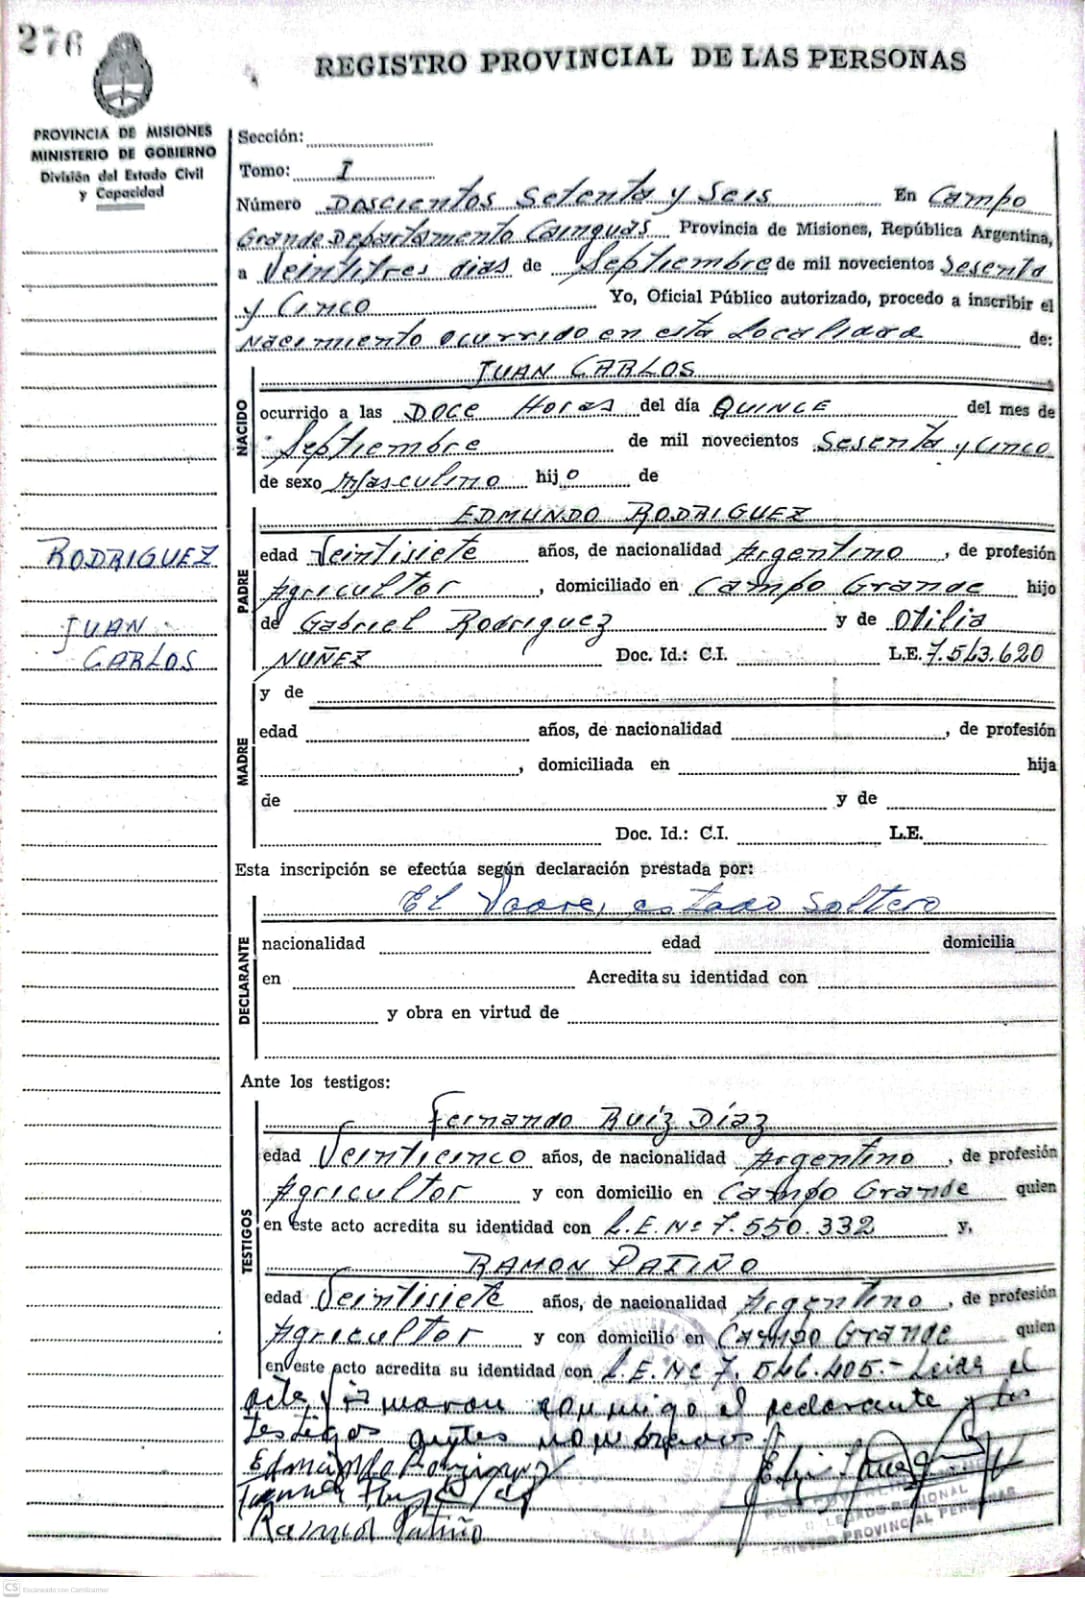 276
REGISTRO PROVINCIAL DE LAS PERSONAS
PROVINCIA DE MISIONES
MINISTERIO DE GOBIERNO
División del Estado Civil
y Capacidad
Sección:
Tomo: I
Número Doscientos Setenta y Seis En Campo
Grande Departamento Cainguás Provincia de Misiones, República Argentina,
a Veintitres dias de Septiembre de mil novecientos Sesenta
y Cinco Yo, Oficial Público autorizado, procedo a inscribir el
Nacimiento ocurrido en esta Localidad de:
NACIDO
JUAN CARLOS
ocurrido a las Doce Horas del día QUINCE del mes de
Septiembre de mil novecientos Sesenta y Cinco
de sexo Masculino hijo de
PADRE
EDMUNDO RODRIGUEZ
edad Veintisiete años, de nacionalidad Argentino, de profesión
Agricultor, domiciliado en Campo Grande hijo
de Gabriel Rodriguez y de Otilia
NUÑEZ Doc. Id.: C.I. L.E. 7.543.620
RODRIGUEZ
JUAN
CARLOS
MADRE
y de
edad años, de nacionalidad, de profesión
, domiciliada en hija
de y de
Doc. Id.: C.I. L.E.
Esta inscripción se efectúa según declaración prestada por:
DECLARANTE
El Padre, estado soltero
nacionalidad edad domicilia
en Acredita su identidad con
y obra en virtud de
Ante los testigos:
TESTIGOS
Fernando Ruíz Díaz
edad Veinticinco años, de nacionalidad Argentino, de profesión
Agricultor y con domicilio en Campo Grande quien
en este acto acredita su identidad con L.E. Nº 7.550.332 y,
RAMON PATIÑO
edad Veintisiete años, de nacionalidad Argentino, de profesión
Agricultor y con domicilio en Campo Grande quien
en este acto acredita su identidad con L.E. Nº 7.546.405.- Leida el
acta firmaron conmigo el declarante y los
testigos antes nombrados.
Edmundo Rodriguez
Ramon Patiño
REGIONAL
REGISTRO PROVINCIAL PERSONAS
CS Escaneado con CamScanner